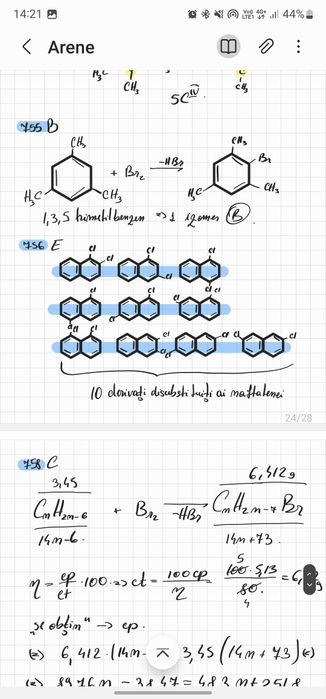 14:21
Vo) 4G+ LTE1 44%
Arene
H₃C CH₃ CH₃
5C^IV.
755 B
CH₃ CH₃
+ Br₂ -HBr Br
H₃C CH₃ H₃C CH₃
1,3,5 trimetilbenzen => 1 izomer (B).
756 E
Cl Cl Cl Cl Cl
Cl Cl Cl Cl
Cl Cl Cl Cl Cl
10 derivați disubstituiți ai naftalenei
24/28
758 C
3,45 6,412g
CnH2n-6 + Br₂ -HBr CnH2n-7Br
14n-6. 14n+73.
η = cp/ct · 100 => ct = 100cp/η 5 100·5,13/80. 4 = 6,
"se obțin" -> cp.
(=) 6,412·(14n- 3,45(14n+73) (=)